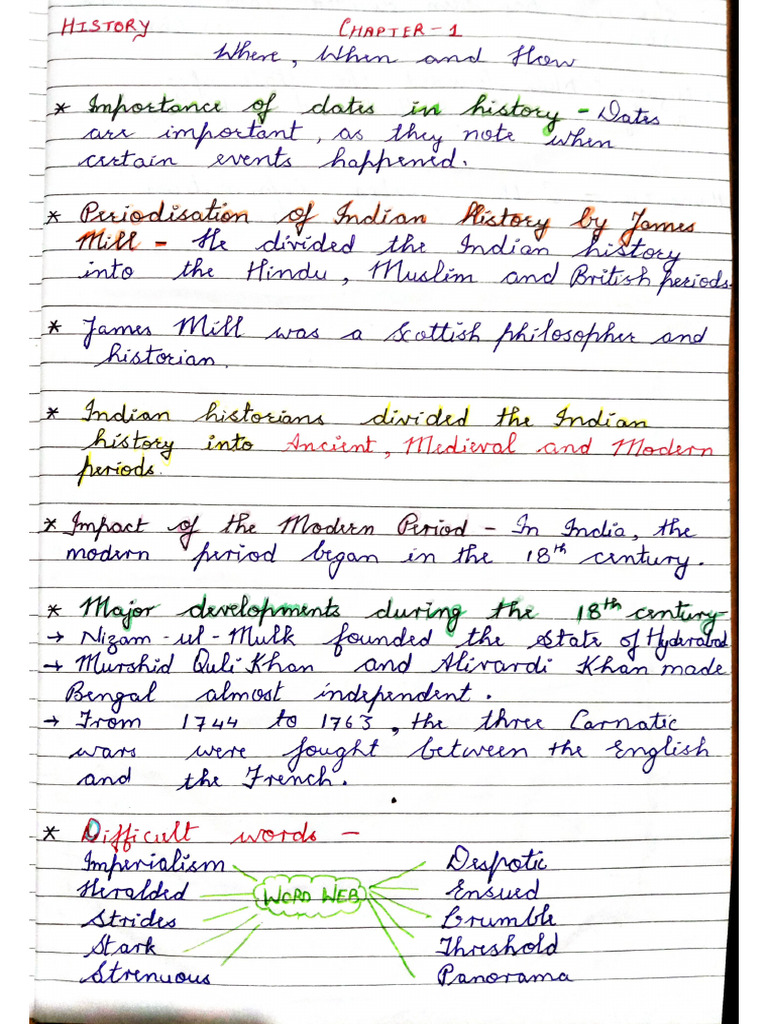 HISTORY CHAPTER-1
Where, When and How
* Importance of dates in history - Dates
are important, as they note when
certain events happened.
* Periodisation of Indian History by James
Mill - He divided the Indian history
into the Hindu, Muslim and British periods.
* James Mill was a Scottish philosopher and
historian.
* Indian historians divided the Indian
history into Ancient, Medieval and Modern
periods.
* Impact of the Modern Period - In India, the
modern period began in the 18th century.
* Major developments during the 18th century-
→ Nizam-ul-Mulk founded the State of Hyderabad
→ Murshid Quli Khan and Alivardi Khan made
Bengal almost independent.
→ From 1744 to 1763, the three Carnatic
wars were fought between the English
and the French.
* Difficult words -
Imperialism Despotic
Heralded WORD WEB Ensued
Strides Crumble
Stark Threshold
Strenuous Panorama